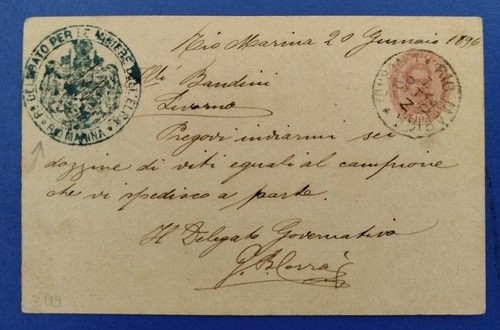 Rio Marina 20 Gennaio 1896
Bandini
Livorno
Pregovi inviarmi sei
dozzine di viti eguali al campione
che vi spedisco a parte.
Il Delegato Governativo
DELEGATO PER LE MINIERE DELL'ELBA
RIO MARINA
3189